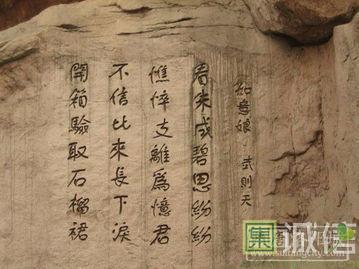 如意娘·武则天
看朱成碧思紛紛
憔悴支離為憶君
不信比來長下淚
開箱驗取石榴裙
集
诚信